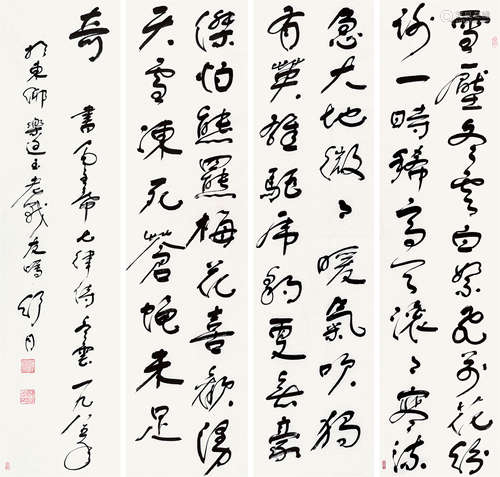 雪壓冬雲白絮飛萬花紛
謝一時稀高天滚々寒流
急大地微々暖氣吹獨
有英雄驅虎豹更無豪
傑怕熊羆梅花喜歡漫
天雪凍死蒼蠅未足
奇 書毛主席七律詩冬雲一九八五年
於東鄉樂王老戰友囑 舒同